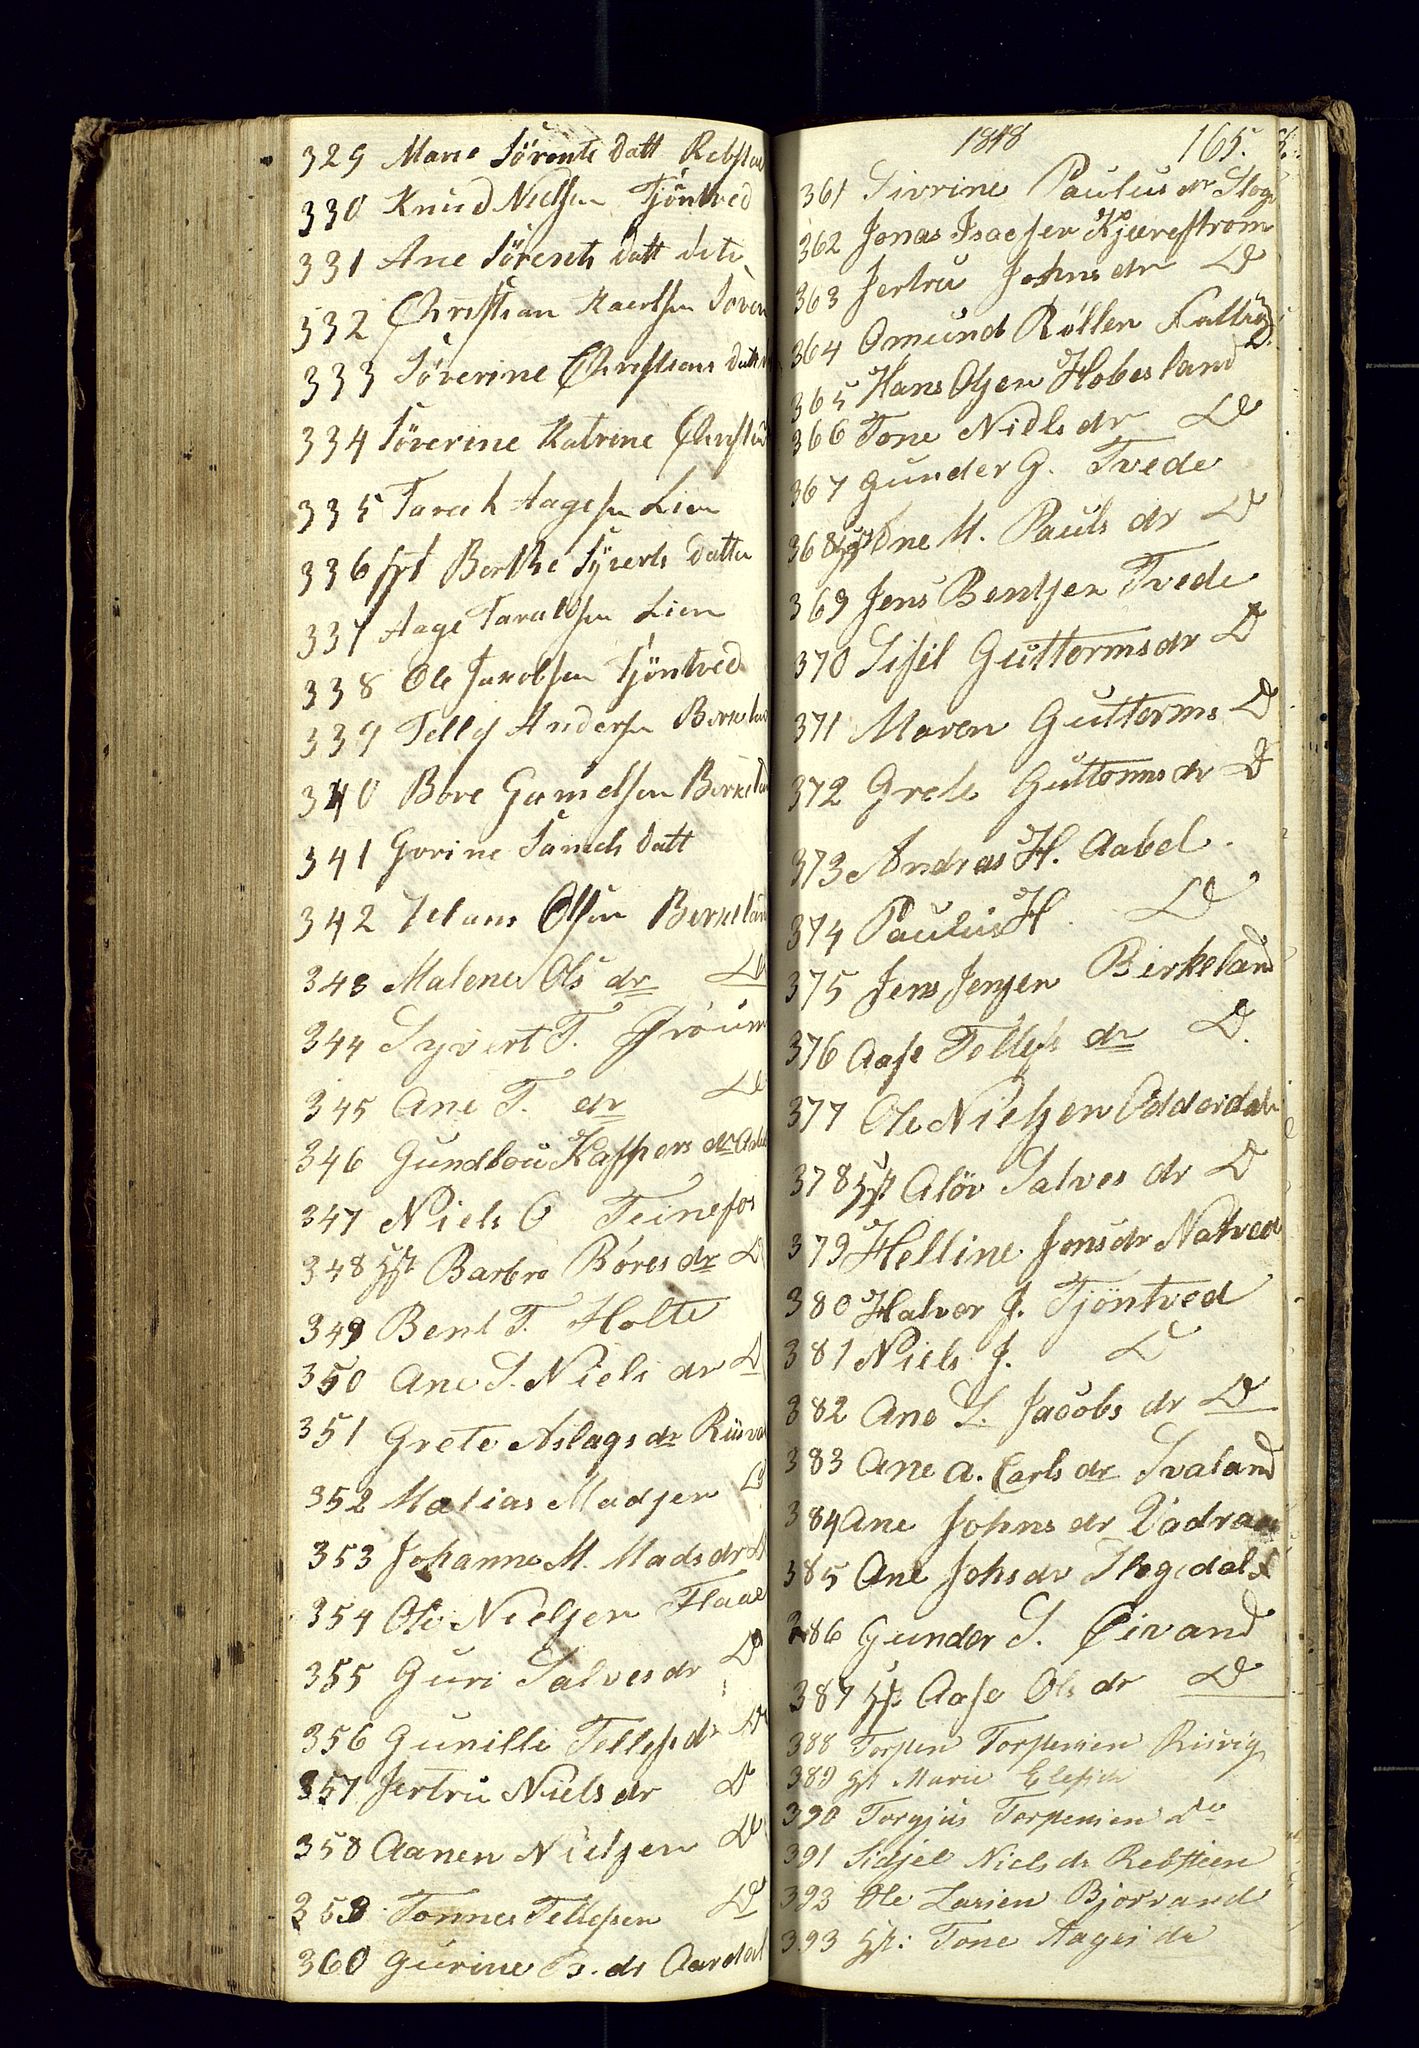 329 Marie Sörents datt Rebsteen
330 Knud Nielsen Tjöntved
331 Ane Sörents datt dito
332 Christian
333 Söverine Christians datt
334 Söverine Katrine
335 Tarek Aagesen Lien
336 hst Berthe Syverts datter
337 Aage Taraldsen Lien
338 Ole Jacobsen Tjöntved
339 Tellef Andersen Birkeland
340 Bore Gunnelsen Birkeland
341 Gorine datt
342 Olsen Birkeland
343 Malene Ols dr Do
344 Syvert T.
345 Ane T. dr Do
346 Gundbou Kaspers dr
347 Niels O Teinefos
348 hst Barbro Böres dr Do
349 Bent T. Holte
350 Ane S. Niels dr Do
351 Grete Aslags dr
352 Matias Madsen Do
353 Johanne M. Mads dr Do
354 Ole Nielsen Flaae
355 Guri Salves dr Do
356 Gunille Tellefs dr Do
357 Jertru Niels dr Do
358 Aanen Nielsen Do
359 Tonnes Tellefsen Do
360 Gurine B. dr Aardal
1848 165.
361 Sivrine Paulus dr
362 Jonas Isacsen Kjærestrøm
363 Jertru Johns dr Do
364 Omund Röllen Fattig
365 Hans Olsen Hobesland
366 Tone Niels dr Do
367 Gunder G. Tvede
368 hst Ane M. Pauls dr Do
369 Jens Bentsen Tvede
370 Sisil Guttorms dr Do
371 Maren Guttorms Do
372 Grete Guttorms dr Do
373 Andreas H. Aabel.
374 Paulus H. Do
375 Jens Jensen Birkeland
376 Aase Tellefs dr Do.
377 Ole Nielsen Odderdal
378 hst Alöv Salves dr Do
379 Helline Jens dr Natved
380 Halvor J. Tjöntved
381 Niels J. Do
382 Ane L. Jacobs dr Do
383 Ane A. Carls dr Svaland
384 Ane Johns dr
385 Ane Johs dr Skogedal
386 Gunder S. Øivand
387 hst Aase Ols dr Do
388 Torsten Torstensen Risvig
389 hst Marie
390 Torgjus Torstensen Do
391 Sidsel Niels dr Rebsteen
393 Ole Larsen Bjorvand
393 hst: Tone Aages dr